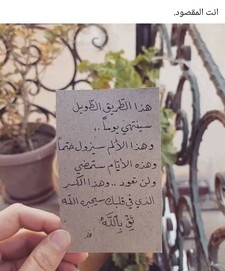 انت المقصود.
هذا الطريق الطويل
سينتهي يوماً..
وهذا الألم سيزول حتماً
وهذه الأيّام ستمضي
ولن تعود .. وهذا الكسر
الذي في قلبك سيجبره الله
ثِقْ بِاللَّهِ